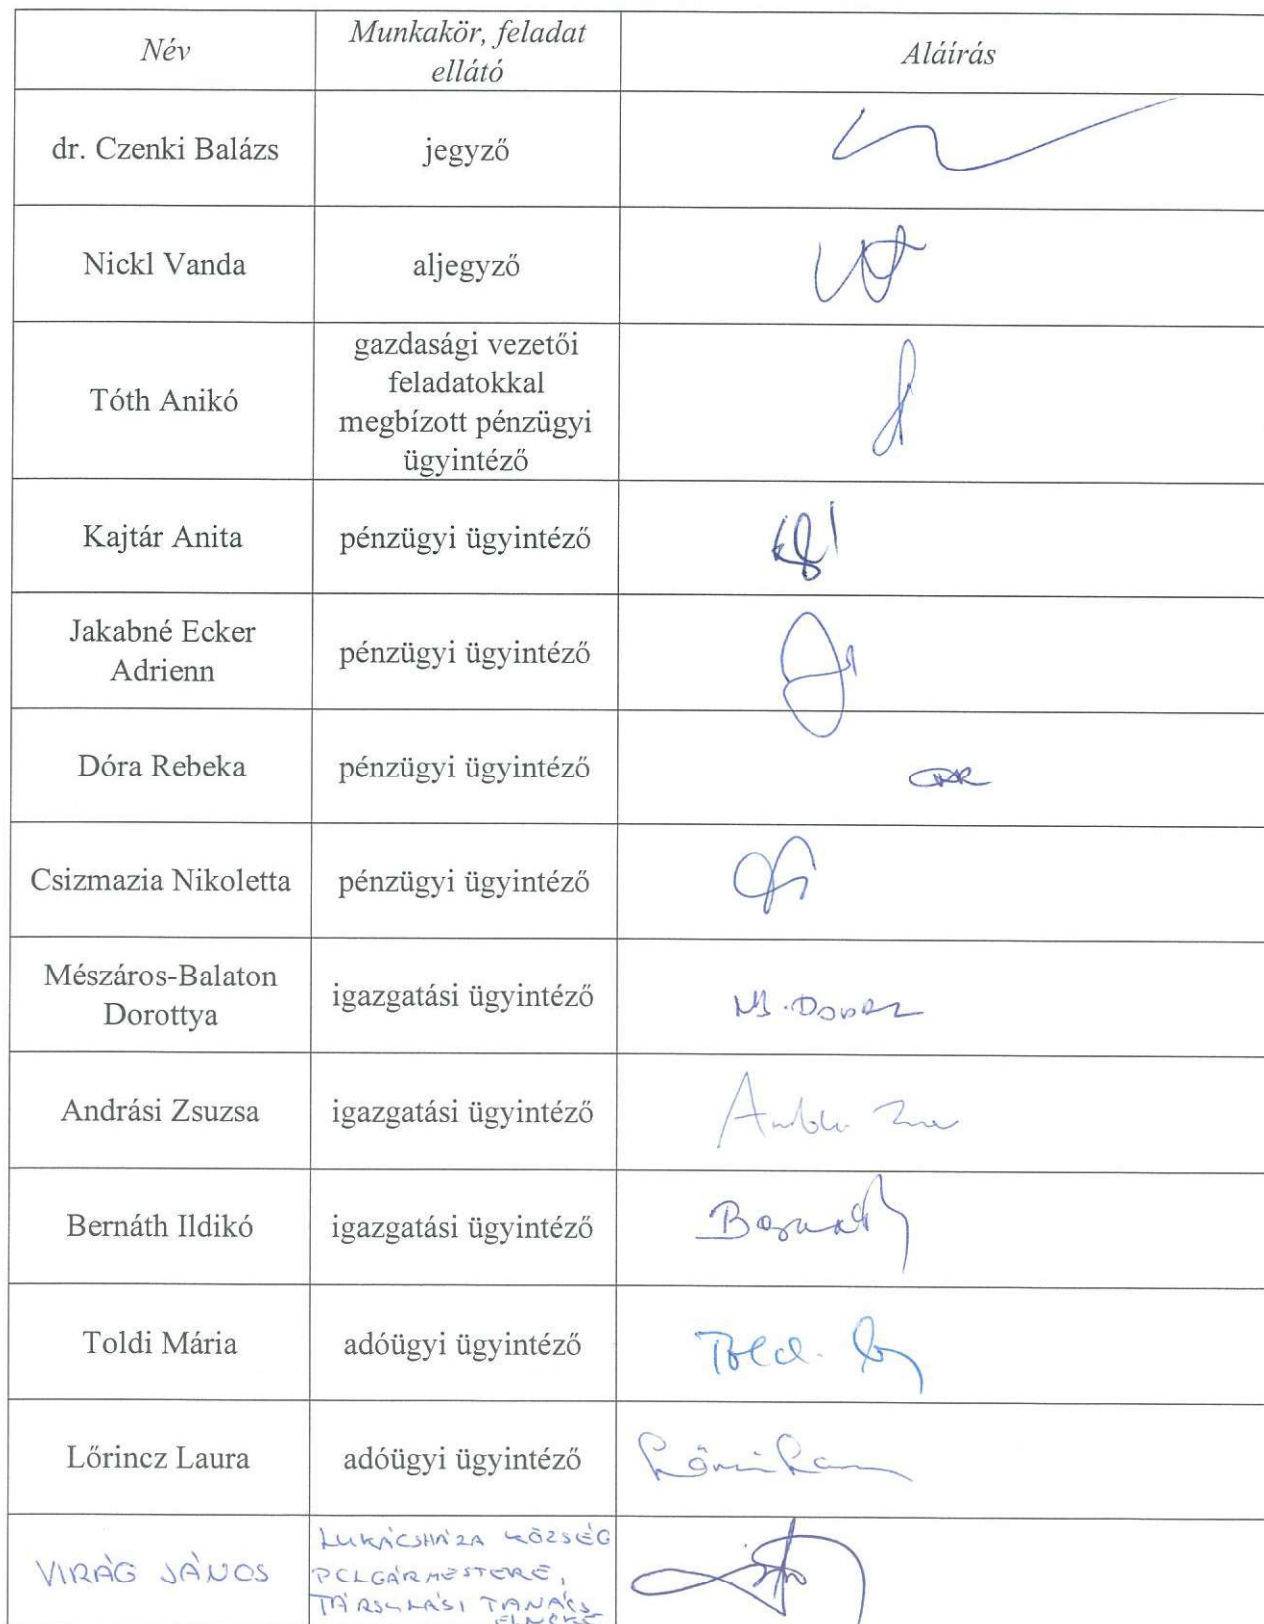 Név
Munkakör, feladat
ellátó
Aláírás
dr. Czenki Balázs
jegyző
Nickl Vanda
aljegyző
Tóth Anikó
gazdasági vezetői
feladatokkal
megbízott pénzügyi
ügyintéző
Kajtár Anita
pénzügyi ügyintéző
Jakabné Ecker
Adrienn
pénzügyi ügyintéző
Dóra Rebeka
pénzügyi ügyintéző
Csizmazia Nikoletta
pénzügyi ügyintéző
Mészáros-Balaton
Dorottya
igazgatási ügyintéző
Andrási Zsuzsa
igazgatási ügyintéző
Bernáth Ildikó
igazgatási ügyintéző
Toldi Mária
adóügyi ügyintéző
Lőrincz Laura
adóügyi ügyintéző
VIRÁG JÁNOS
LUKÁCSHÁZA KÖZSÉG
POLGÁRMESTERE,
TÁRSULÁSI TANÁCS
ELNÖKE